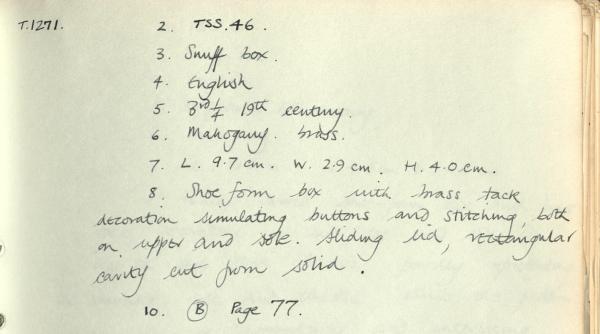 T.1271. 2. TSS.46.
3. Snuff box.
4. English
5. 3rd 1/4 19th century.
6. Mahogany. brass.
7. L. 9.7 cm. W. 2.9 cm. H. 4.0 cm.
8. Shoe form box with brass tack
decoration simulating buttons and stitching, both
on upper and sole. Sliding lid, rectangular
cavity cut from solid.
10. Ⓑ Page 77.